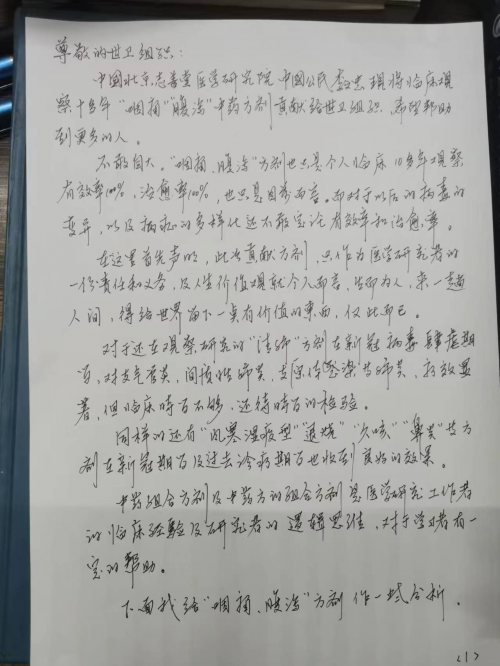 尊敬的世卫组织：
中国北京志善堂医学研究院中国公民 忠 现将临床观
察十多年“咽痛”“腹泻”中药方剂贡献给世卫组织，希望帮助
到更多的人。
不敢自大，“咽痛、腹泻”方剂也只是个人临床10多年观察
有效率100%，治愈率100%，也只是目前而言。而对于以后的病毒的
变异，以及病症的多样化还不敢定论有效率和治愈率。
在这里首先声明，此次贡献方剂，只作为医学研究者的
一份责任和义务，及人生价值观就个人而言，生而为人，来一趟
人间，得给世界留下一点有价值的东西，仅此而已。
对于还在观察研究的“清肺”方剂在新冠病毒肆虐期
间，对支气管炎，间质性肺炎，支原体感染性肺炎，疗效显
著，但临床时间不够，还待时间的检验。
同样的还有“风寒湿疫型”“退烧”“久咳”“鼻炎”等方
剂在新冠期间及过去冷病期间也收到良好的效果。
中药组合方剂及中药方的组合方剂是医学研究工作者
的临床经验及研究者的逻辑思维，对于学者有一
定的帮助。
下面我给“咽痛、腹泻”方剂作一些分析。
(1)